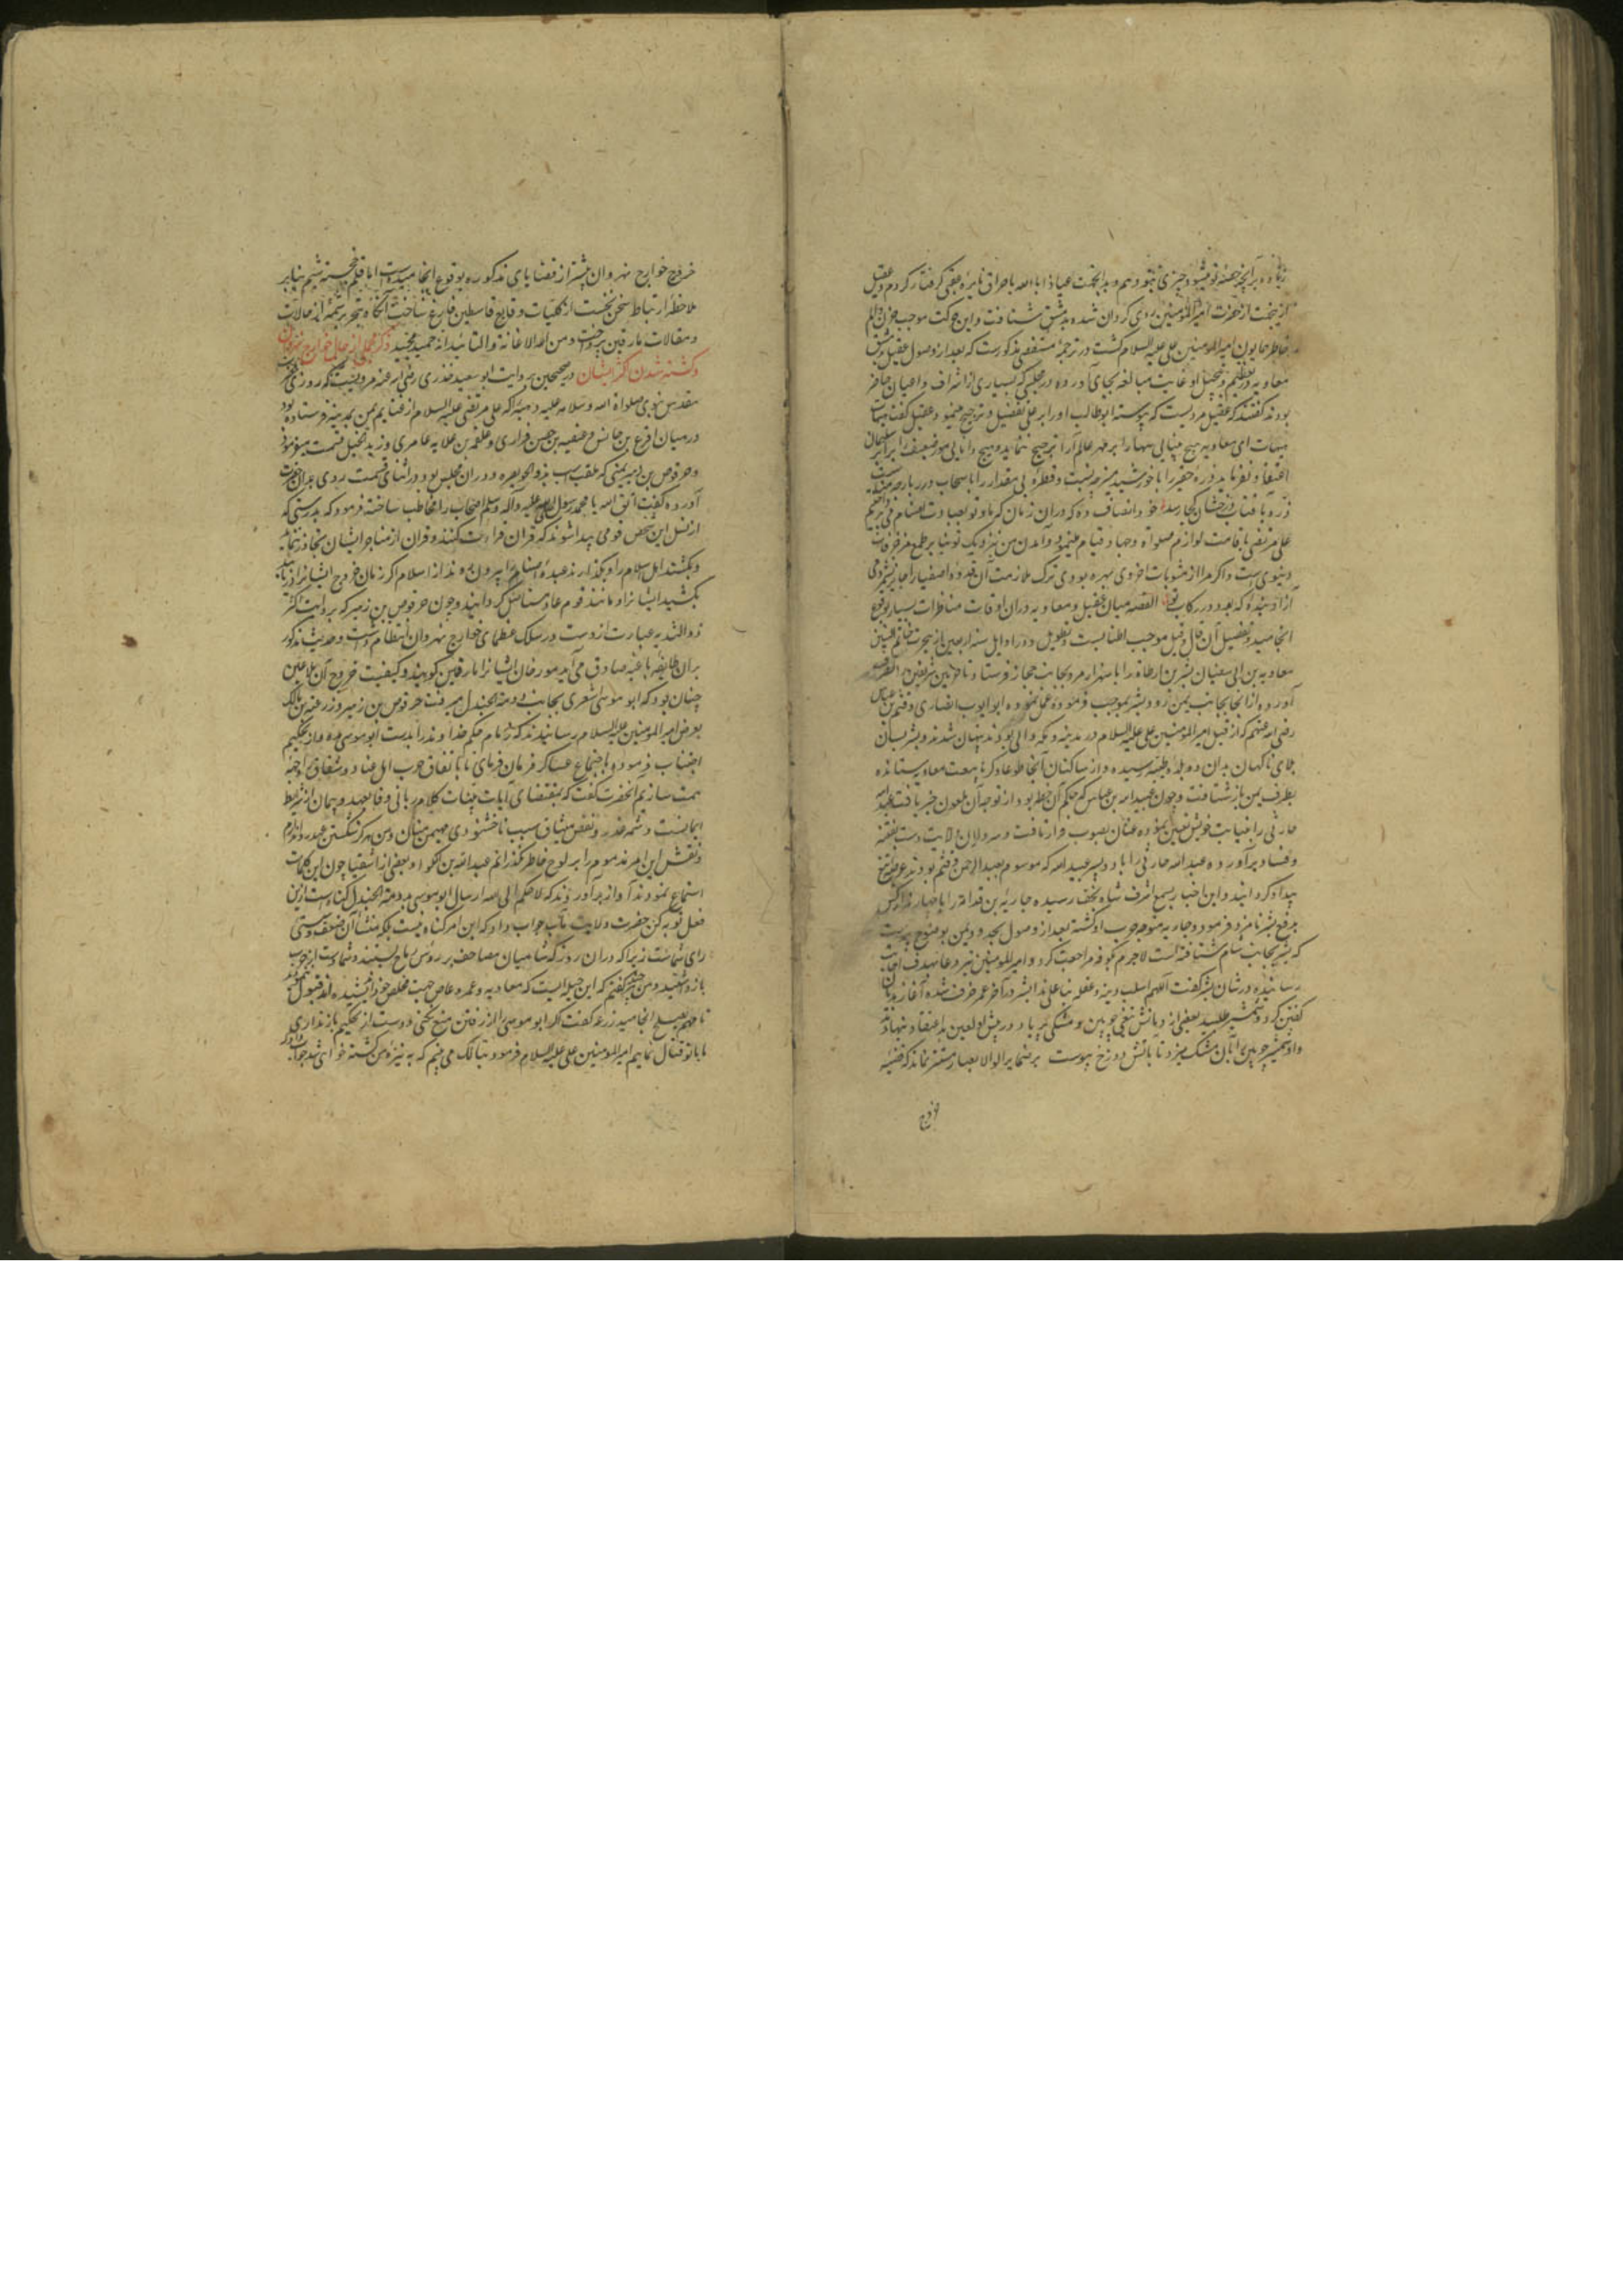 زیاده بر آنچه حصهٔ تو میشود چیزی بتو دهم و بدانجهت عیاذا بالله باحراق نایرهٔ عقبی گرفتار گردم و عقیل
ازینجهت از حضرت امیرالمومنین روی گردان شده بدمشق شتافت و این حرکت موجب حزن و الم
خاطر همایون امیرالمومنین علی علیه السلام گشت و در ترجمهٔ مستقصی مذکورست که بعد از وصول عقیل بدمشق
معاویه در تعظیم و تبجیل او غایت مبالغه بجای آورده در مجلسی که بسیاری از اشراف و اعیان حاضر
بودند گفتند که عقیل مردیست که پیوسته ابوطالب او را بر علی تفضیل و ترجیح مینمود و عقیل گفت هیهات
هیهات ای معاویه هیچ بینایی سها را بر مهر عالم آرا ترجیح ننماید و هیچ دانایی مور ضعیف را برابر سلیمان
ذره حقیر را با خورشید منیر چه نسبت و قطرهٔ بی مقدار را با سحاب دربار چه مناسبت
ذره با آفتاب درخشان کجا رسد خود انصاف ده که دران زمان که ما و تو بعبادت اصنام
علی مرتضی باقامت لوازم صلواة و قیام مینمود و آمدن من نزدیک تو بنابر طمع مزخرفات
دنیوی است و اگر مرا از مثوبات اخروی بهره بودی ترک ملازمت آن قدوهٔ اصفیا را جایز نشمردمی
القصه میان عقیل و معاویه دران اوقات مناظرات بسیار بوقوع
انجامید و تفصیل آن قال و قیل موجب اطنابست و تطویل و در اوایل سنه اربعین از هجرت خاتم النبیین
معاویه بن ابی سفیان بشر بن ارطاة را با سه هزار مرد بجانب حجاز فرستاد تا حرمین شریفین را بتصرف
آورده از انجا بجانب یمن رود و بشر بموجب فرموده عمل نموده ابو ایوب انصاری و قثم بن عباس
رضی الله عنهم که از قبل امیرالمومنین علی علیه السلام در مدینه و مکه والی بودند پنهان شدند و بشر بسان
بلای ناگهان بدان دو بلدهٔ طیبه رسیده و از ساکنان آنجا طوعا و کرها بیعت معاویه ستانده
بطرف یمن باز شتافت و چون عبید الله بن عباس که حاکم آن خطه بود از توجه آن ملعون خبر یافت عبدالله
حارثی را بنیابت خویش تعیین نموده عنان بصوب فرار تافت و بشر بدان ولایت دست بفتنه
و فساد برآورده عبد الله حارثی را با دو پسر عبید الله که موسوم بعبد الرحمن و قثم بودند عرضهٔ تیغ
بیداد گردانید و این اخبار بسمع اشرف شاه نجف رسیده جاریة بن قدامه را با چهار هزار کس
برفع بشر نامزد فرمود و جاریه متوجه حرب او گشته بعد از وصول بحدود یمن بوضوح پیوست
که بشر بجانب شام شتافته است لاجرم بکوفه مراجعت کرد و امیرالمومنین تیر دعا بهدف اجابت
رسانیده در شان بشر گفت اللهم اسلب دینه و عقله بنا علی هذا بشر در آخر عمر خرف شده آغاز هذیان
گفتن کرد و شمشیر طلبید بعضی از تیغی چوبین و مشکی پر باد در پیش او لعین نهادند
و او شمشیر چوبین بران مشک میزد تا بآتش دوزخ پیوست بر ضمایر اولوا الابصار مستتر نماند که قضیه
خروج
خروج خوارج نهروان پیشتر از قضایای مذکوره بوقوع انجامیده است اما قلم خجسته شیم بنابر
ملاحظهٔ ارتباط سخن نخست از کلیات وقایع قاسطین فارغ ساخت آنگاه بتحریر تتمه از حالات
و مقالات مارقین پرداخت و من الله الاعانة و التائید انه حمید مجید ذکر مجملی از حال خوارج نهروان
و کشته شدن اکثر ایشان در صحیحین بروایت ابو سعید خدری رضی الله عنه مرویست که روزی
مقدس نبوی صلواة الله و سلامه علیه که علی مرتضی علیه السلام از غنایم یمن بمدینه فرستاده بود
درمیان اقرع بن حابس و عیینه بن حصن فزاری و علقمه بن علاثه عامری و زید الخیل قسمت میفرمود
و حرقوص بن زهیر تمیمی که ملقب بود بذو الخویصره دران مجلس بود در اثنای قسمت روی بدان حضرت
آورده گفت اتق الله یا محمد رسول صلی الله علیه و آله و سلم اصحاب را مخاطب ساخته فرمود که بدرستی که
از نسل این شخص قومی پیدا شوند که قران قراءت کنند و قران از حناجر ایشان تجاوز ننماید
و بکشند اهل اسلام را و بگذارند عبدهٔ اصنام را بیرون روند از اسلام اگر زمان خروج ایشانرا دریابید
بکشید ایشانرا و مانند قوم عاد مستاصل گردانید و چون حرقوص بن زهیر که بروایت اکثر
ذو الثدیه عبارت ازوست در سلک عظمای خوارج نهروان انتظام داشت و حدیث مذکور
بران طایفهٔ باغیه صادق می آید مورخان ایشانرا مارقین گویند و کیفیت خروج آن ملاعین
چنان بود که ابو موسی اشعری بجانب دومة الجندل میرفت حرقوص بن زهیر و زرعه بن مالک
بعرض امیرالمومنین علیه السلام رسانیدند که زمام حکم خداوند را بدست ابو موسی مده و از تحکیم
اجتناب فرموده باجتماع عساکر فرمان فرمای تا باتفاق حرب اهل عناد و شقاق را وجه
همت سازیم آنحضرت گفت که بمقتضای آیات بینات کلام ربانی وفا بعهد و پیمان از شرایط
ایمانست و شمه غدر و نقض میثاق سبب ناخشنودی مهیمن منان و من هرگز شکستن عهد روا ندارم
و نقش این امر مذموم را بر لوح خاطر نگذرانم عبد الله بن الکوا و بعضی از اشقیا چون این کلمات
استماع نمودند آواز برآوردند که لا حکم الا لله ارسال ابو موسی بدومة الجندل گناه است ازین
فعل توبه کن حضرت ولایت مآب جواب داد که این امر گناه نیست بلکه منشأ آن ضعف و سستی
رای شماست زیرا که دران روز که شامیان مصاحف بر رؤس رماح بستند و شما دست از حرب
باز داشتید و من گفتم که این حیله ایست که معاویه و عمرو عاص جهت مخلص خود اندیشیده اند قبول ننمودید
تا مهم بصلح انجامید زرعه گفت اگر ابو موسی را از رفتن منع نکنی و دست از تحکیم باز نداری
ما با تو قتال نماییم امیرالمومنین علی علیه السلام فرمود تبا لک می بینم که به نیزهٔ من کشته خواهی شد جواب داد که